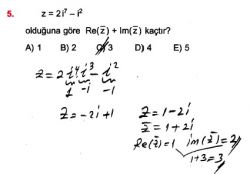 5. z = 2i⁷ – i²
olduğuna göre Re(z̄) + Im(z̄) kaçtır?
A) 1 B) 2 C) 3 D) 4 E) 5
z = 2 i⁴ i³ – i²
1 -i -1
z = -2i + 1
z = 1 - 2i
z̄ = 1 + 2i
Re(z̄) = 1 im(z̄) = 2
1+3=3